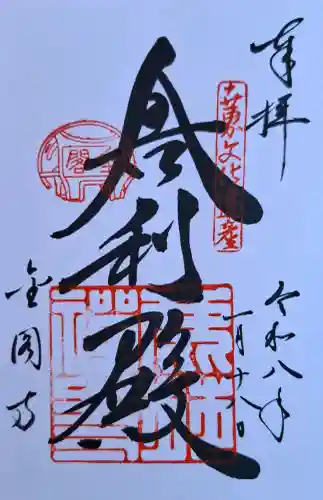 奉拝
世界文化遺産
舎利殿
令和八年
一月十八日
金閣寺